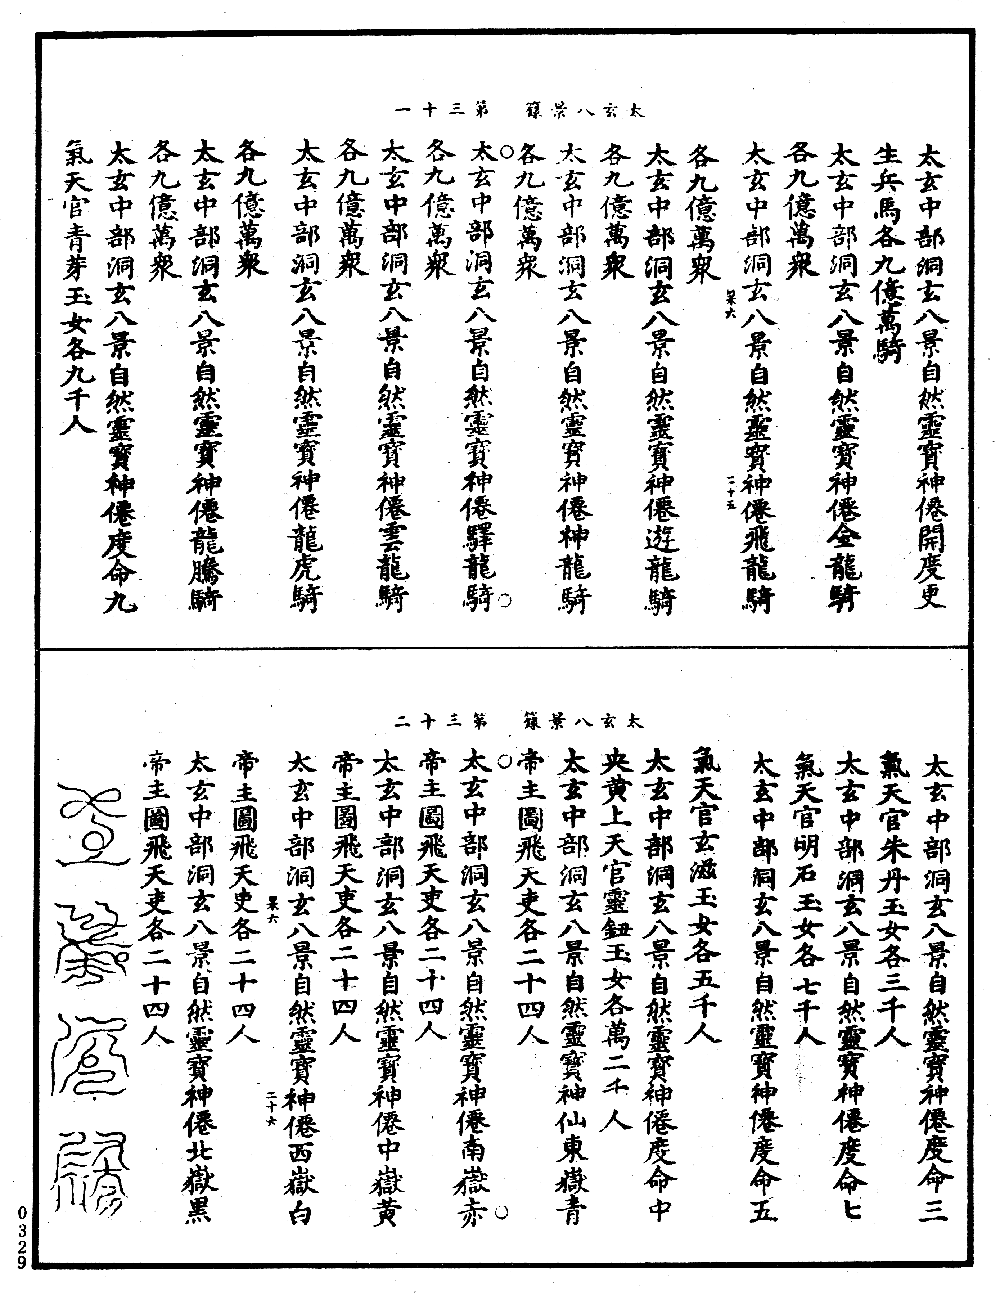 太玄八景籙　第三十一
太玄中部洞玄八景自然靈寶神僊開度更
生兵馬各九億萬騎
太玄中部洞玄八景自然靈寶神僊金龍騎
各九億萬衆
太玄中部洞玄八景自然靈寶神僊飛龍騎
杲六　二十五
各九億萬衆
太玄中部洞玄八景自然靈寶神僊遊龍騎
各九億萬衆
太玄中部洞玄八景自然靈寶神僊神龍騎
各九億萬衆
太玄中部洞玄八景自然靈寶神僊驛龍騎
各九億萬衆
太玄中部洞玄八景自然靈寶神僊雲龍騎
各九億萬衆
太玄中部洞玄八景自然靈寶神僊龍虎騎
各九億萬衆
太玄中部洞玄八景自然靈寶神僊龍騰騎
各九億萬衆
太玄中部洞玄八景自然靈寶神僊度命九
氣天官青芽玉女各九千人
太玄八景籙　第三十二
太玄中部洞玄八景自然靈寶神僊度命三
氣天官朱丹玉女各三千人
太玄中部洞玄八景自然靈寶神僊度命七
氣天官明石玉女各七千人
太玄中部洞玄八景自然靈寶神僊度命五
氣天官玄滋玉女各五千人
太玄中部洞玄八景自然靈寶神僊度命中
央黄上天官靈鈕玉女各萬二千人
太玄中部洞玄八景自然靈寶神仙東嶽青
帝主圖飛天吏各二十四人
太玄中部洞玄八景自然靈寶神僊南嶽赤
帝主圖飛天吏各二十四人
太玄中部洞玄八景自然靈寶神僊中嶽黄
帝主圖飛天吏各二十四人
太玄中部洞玄八景自然靈寶神僊西嶽白
杲六　二十六
帝主圖飛天吏各二十四人
太玄中部洞玄八景自然靈寶神僊北嶽黑
帝主圖飛天吏各二十四人
0329